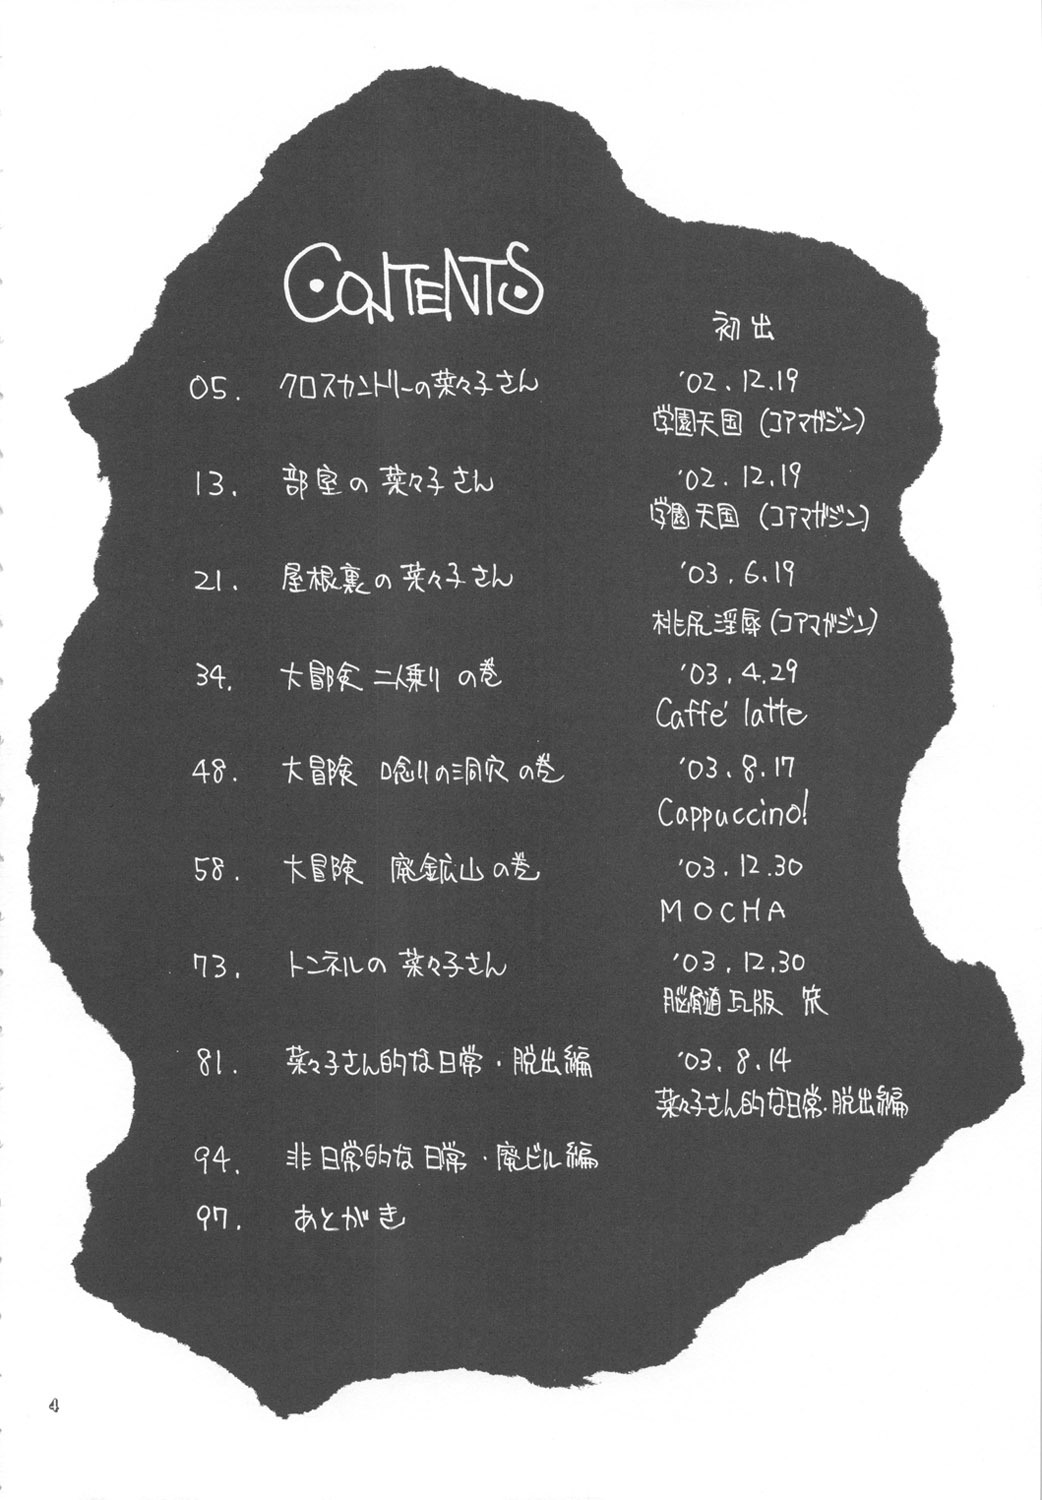 CONTENTS
初出
05. クロスカントリーの菜々子さん '02.12.19
学園天国 (コアマガジン)
13. 部室の菜々子さん '02.12.19
学園天国 (コアマガジン)
21. 屋根裏の菜々子さん '03.6.19
桃尻淫辱 (コアマガジン)
34. 大冒険 二人乗りの巻 '03.4.29
Caffe' latte
48. 大冒険 唸りの洞穴の巻 '03.8.17
Cappuccino!
58. 大冒険 廃鉱山の巻 '03.12.30
MOCHA
73. トンネルの菜々子さん '03.12.30
脳髄瓦版
81. 菜々子さん的な日常・脱出編 '03.8.14
菜々子さん的な日常・脱出編
94. 非日常的な日常・廃ビル編
97. あとがき
4